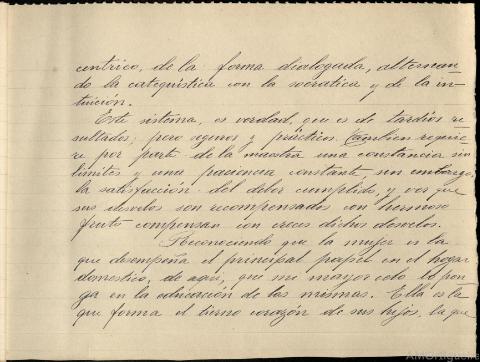 céntrico, de la forma dialogada, alternan-
do la catequística con la socrática y de la in-
tuición.
Este sistema, es verdad, que es de tardíos re-
sultados; pero seguros y prácticos. También requie-
re por parte de la maestra una constancia sin
límites y una paciencia constante, sin embargo,
la satisfacción del deber cumplido, y ver que
sus desvelos son recompensados con hermoso
fruto compensan con creces dichos desvelos.
Reconociendo que la mujer es la
que desempeña el principal papel en el hogar
doméstico, de aquí, que mi mayor celo lo pon-
ga en la educación de las mismas. Ella es la
que forma el tierno corazón de sus hijos, la que